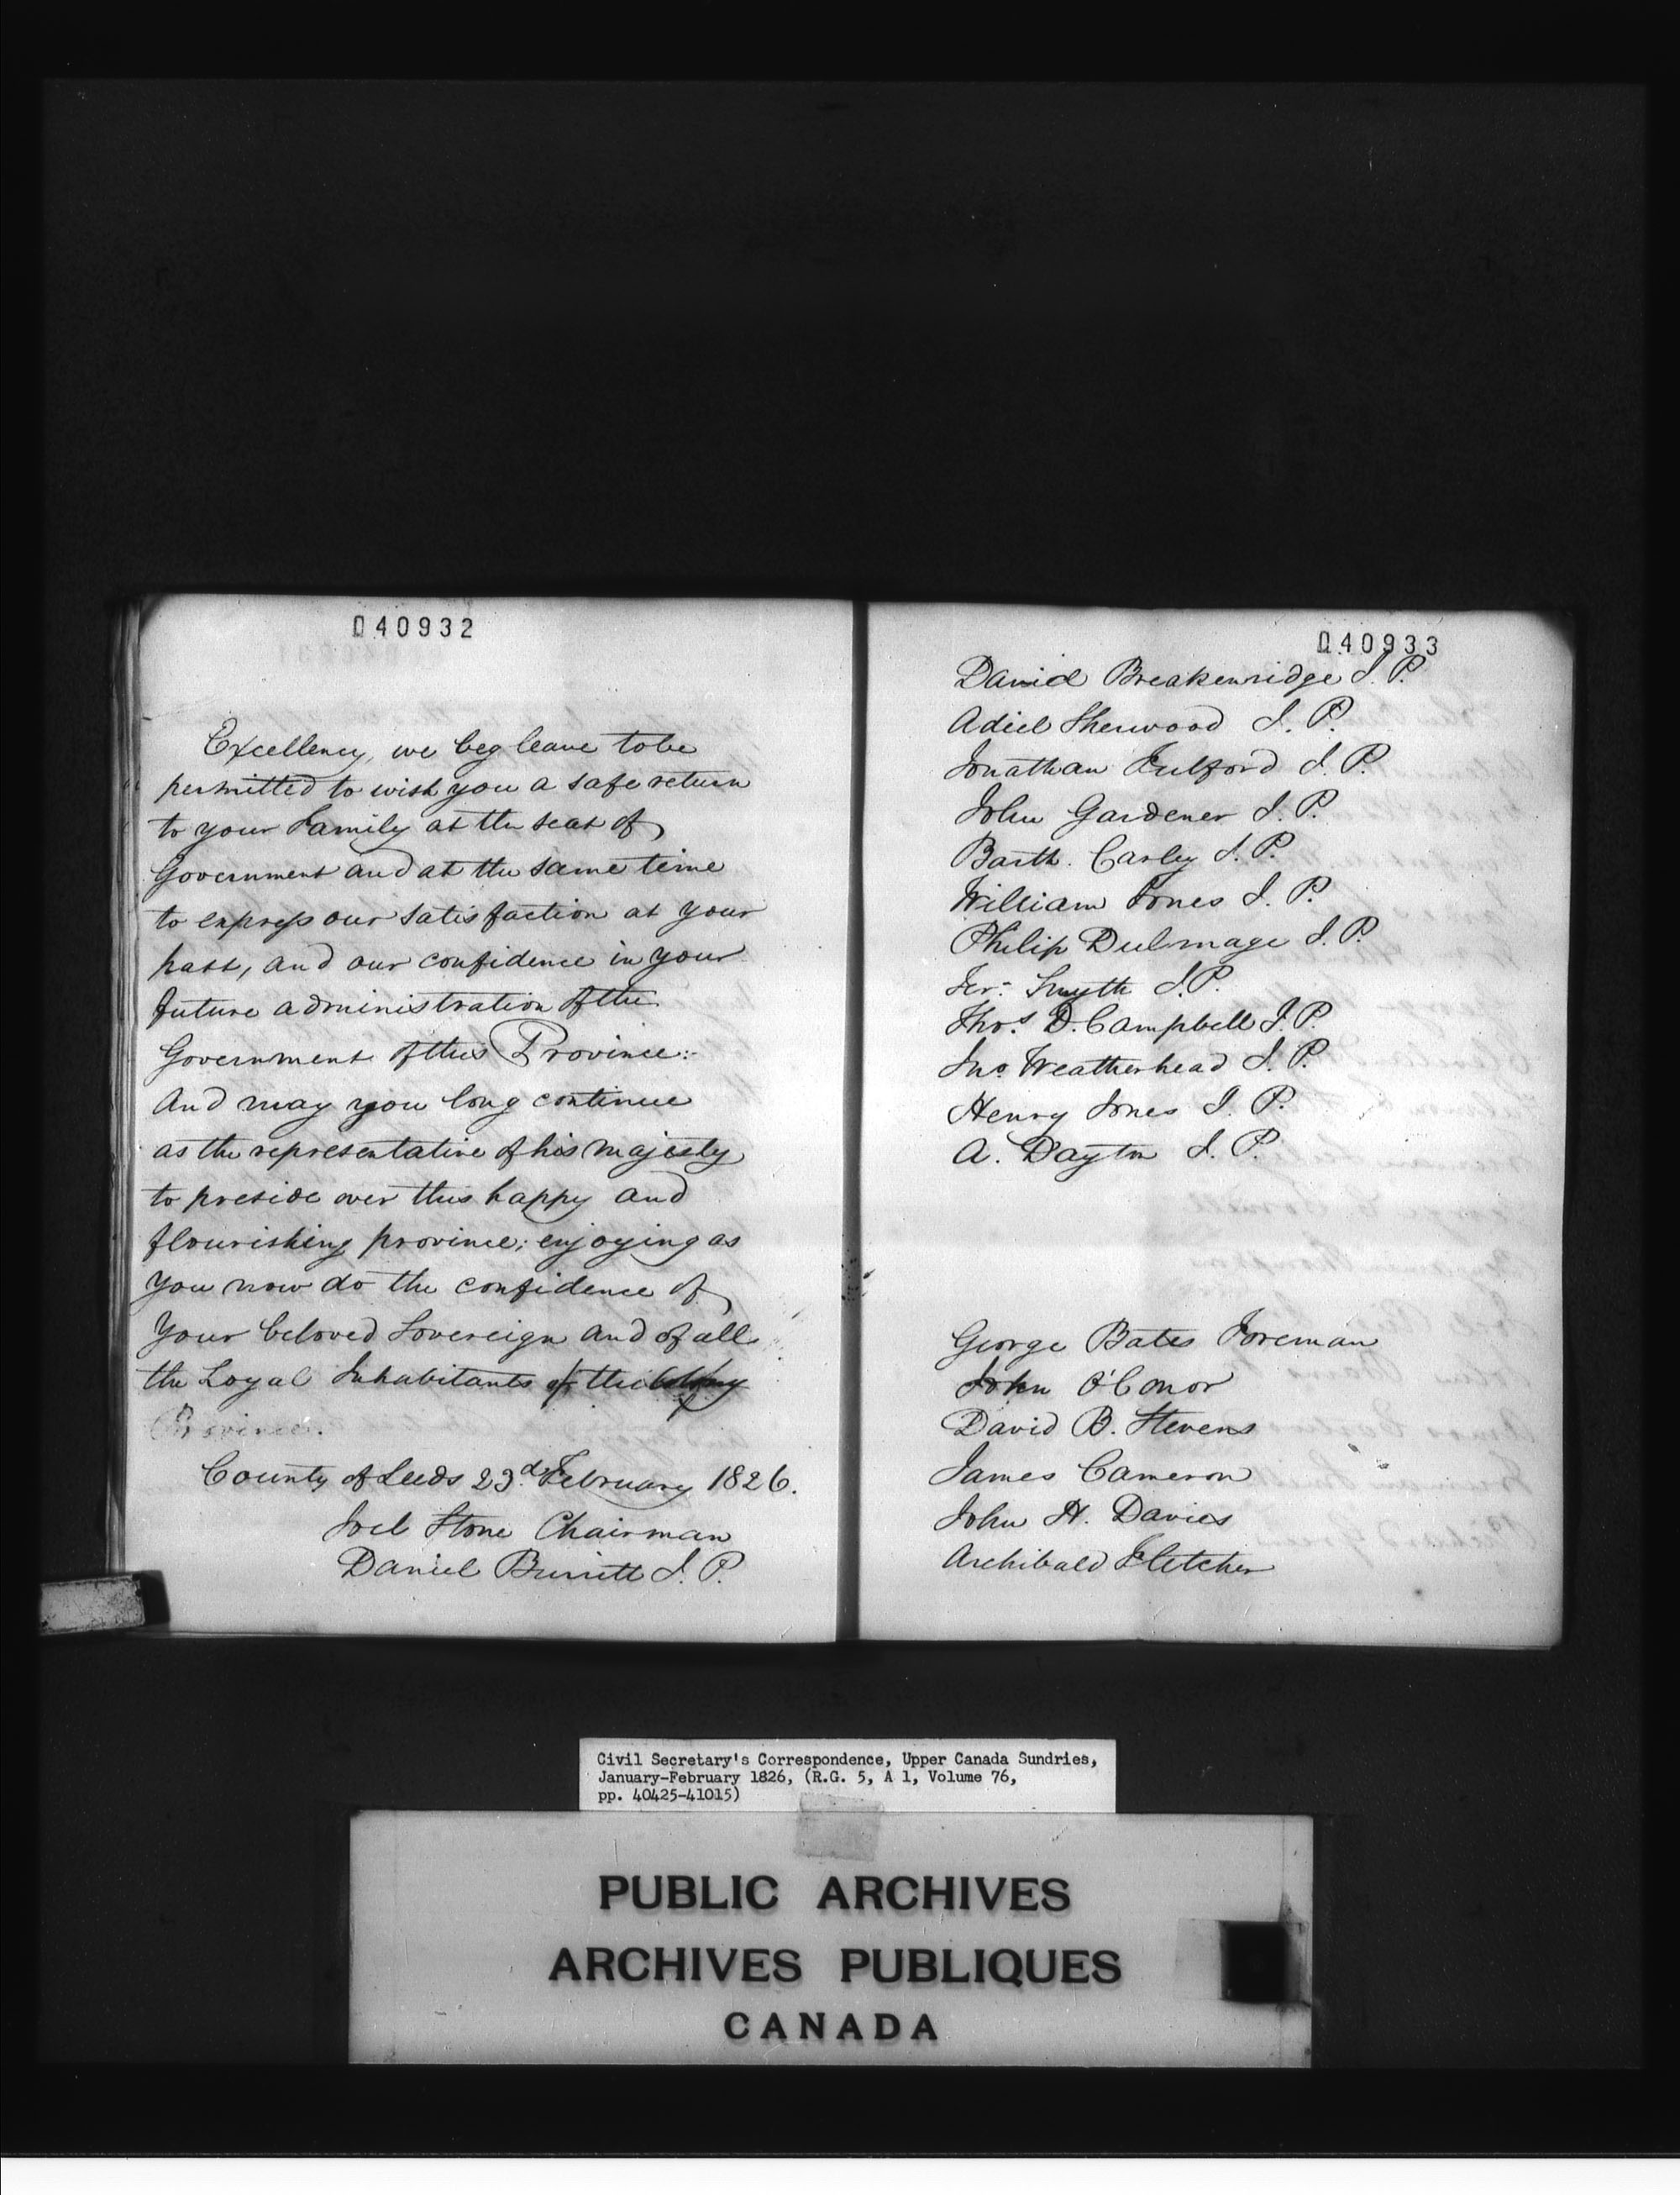 040932
Excellency, we beg leave to be
permitted to wish you a safe return
to your Family at the seat of
Government and at the same time
to express our satisfaction at your
past, and our confidence in your
future administration of the
Government of this Province:-
And may you long continue
as the representative of his Majesty
to preside over this happy and
flourishing province; enjoying as
you now do the confidence of
your beloved Sovereign and of all
the Loyal Inhabitants of the
Province.
County of Leeds 23.d February 1826.
Joel Stone Chairman
Daniel Burritt J. P.
040933
David Breakenridge J. P.
Adiel Sherwood J. P.
Jonathan Fulford J. P.
John Gardener J. P.
Barth. Carley J. P.
William Jones J. P.
Philip Dulmage J. P.
Ter- Smyth J. P.
Thos. D. Campbell J. P.
Jno. Weatherhead J. P.
Henry Jones J. P.
A. Dayton J. P.
George Bates Foreman
John O'Conor
David B. Stevens
James Cameron
John H. Davies
Archibald Fletcher
Civil Secretary's Correspondence, Upper Canada Sundries,
January-February 1826, (R.G. 5, A 1, Volume 76,
pp. 40425-41015)
PUBLIC ARCHIVES
ARCHIVES PUBLIQUES
CANADA